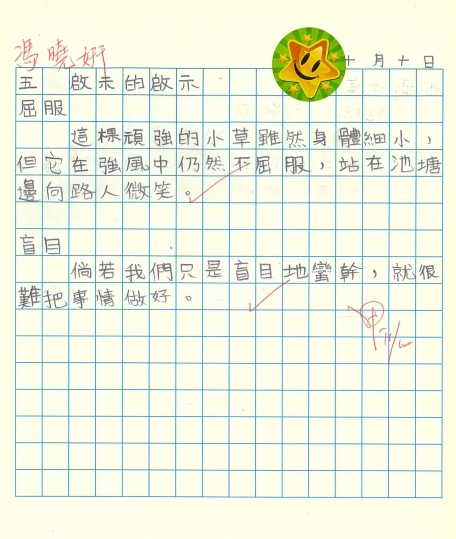 馮曉妍
十月十日
五 啟示的啟示
屈服
這棵頑強的小草雖然身體細小，
但它在強風中仍然不屈服，站在池塘
邊向路人微笑。
盲目
倘若我們只是盲目地蠻幹，就很
難把事情做好。